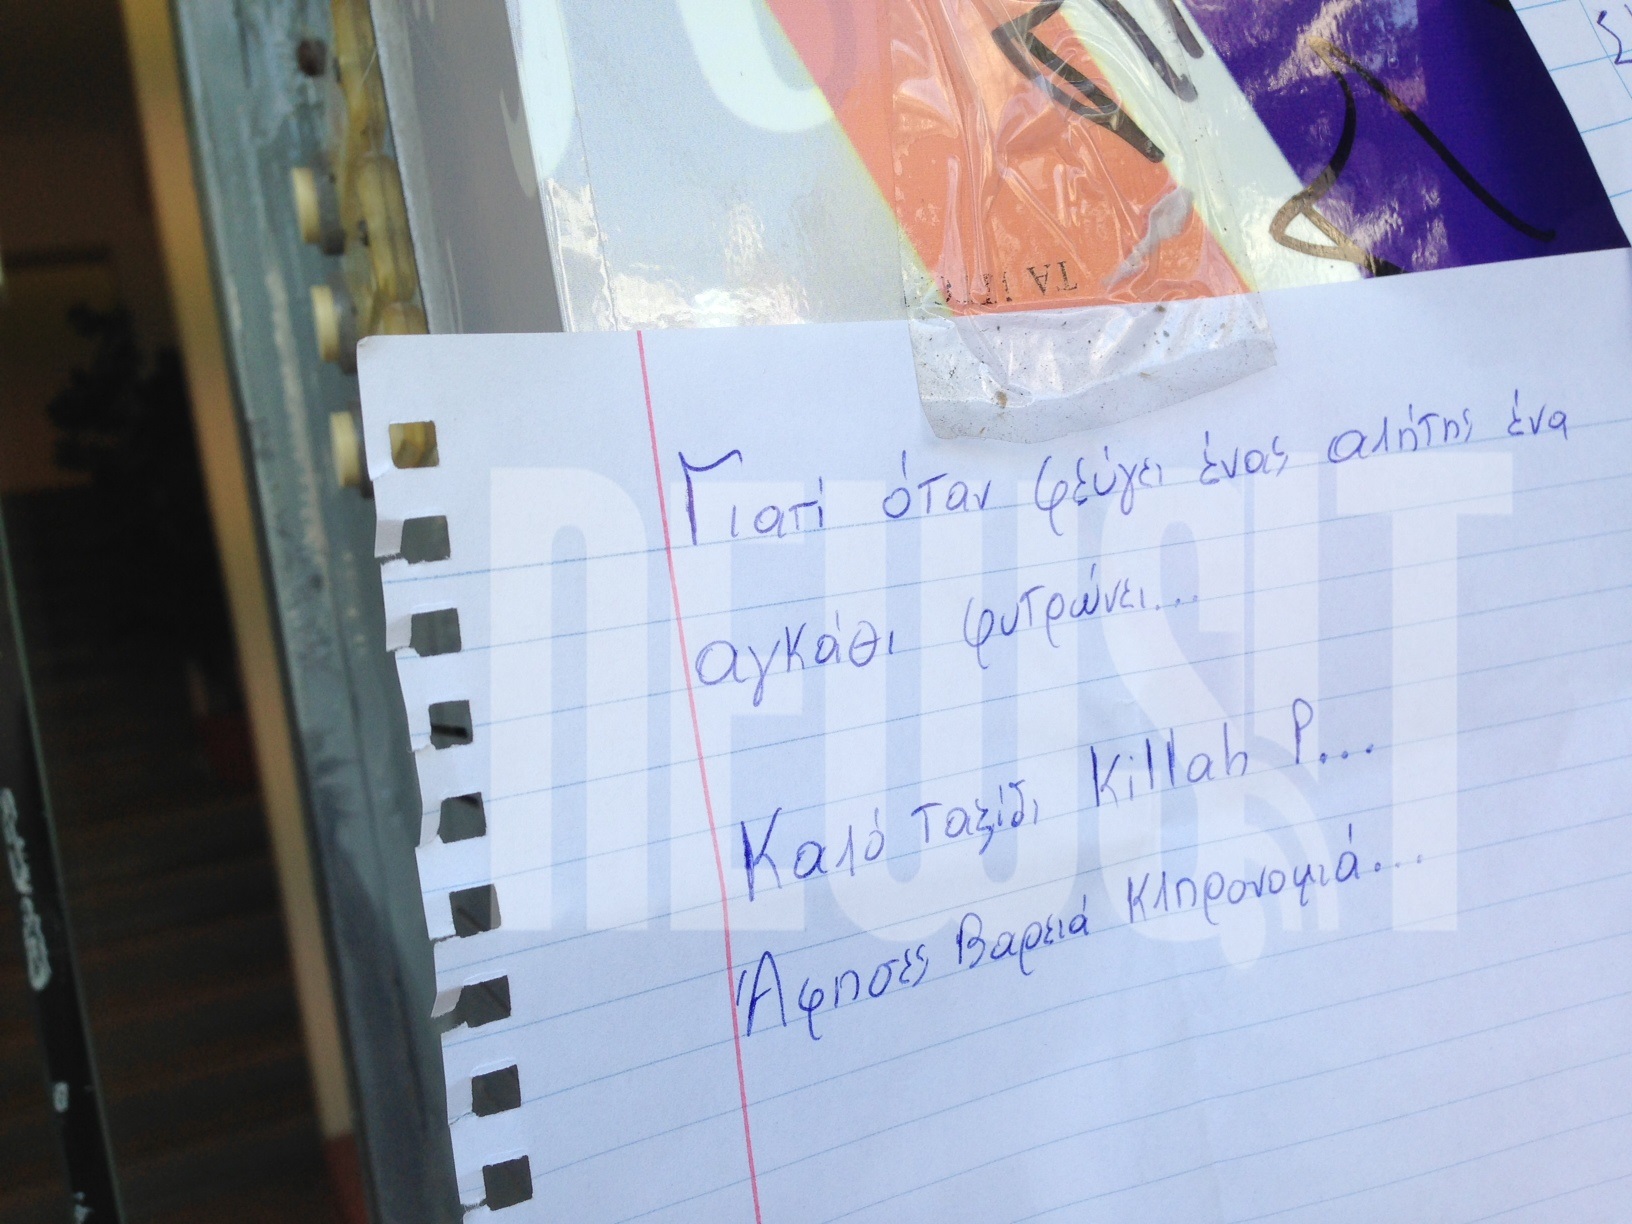 ΤΑ
Γιατί όταν φεύγει ένας αλήτης ένα
αγκάθι φυτρώνει...
Καλό ταξίδι Killah P...
Άφησες Βαρειά κληρονομιά...
NEWSIT